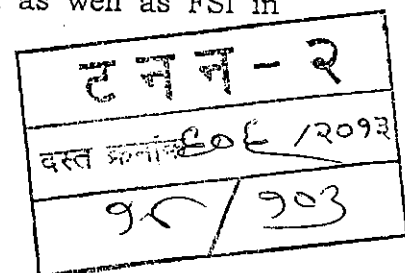 as well as FSI in
टनन - २
दस्त क्रमांक ६०६ /२०१३
१८ / १०३